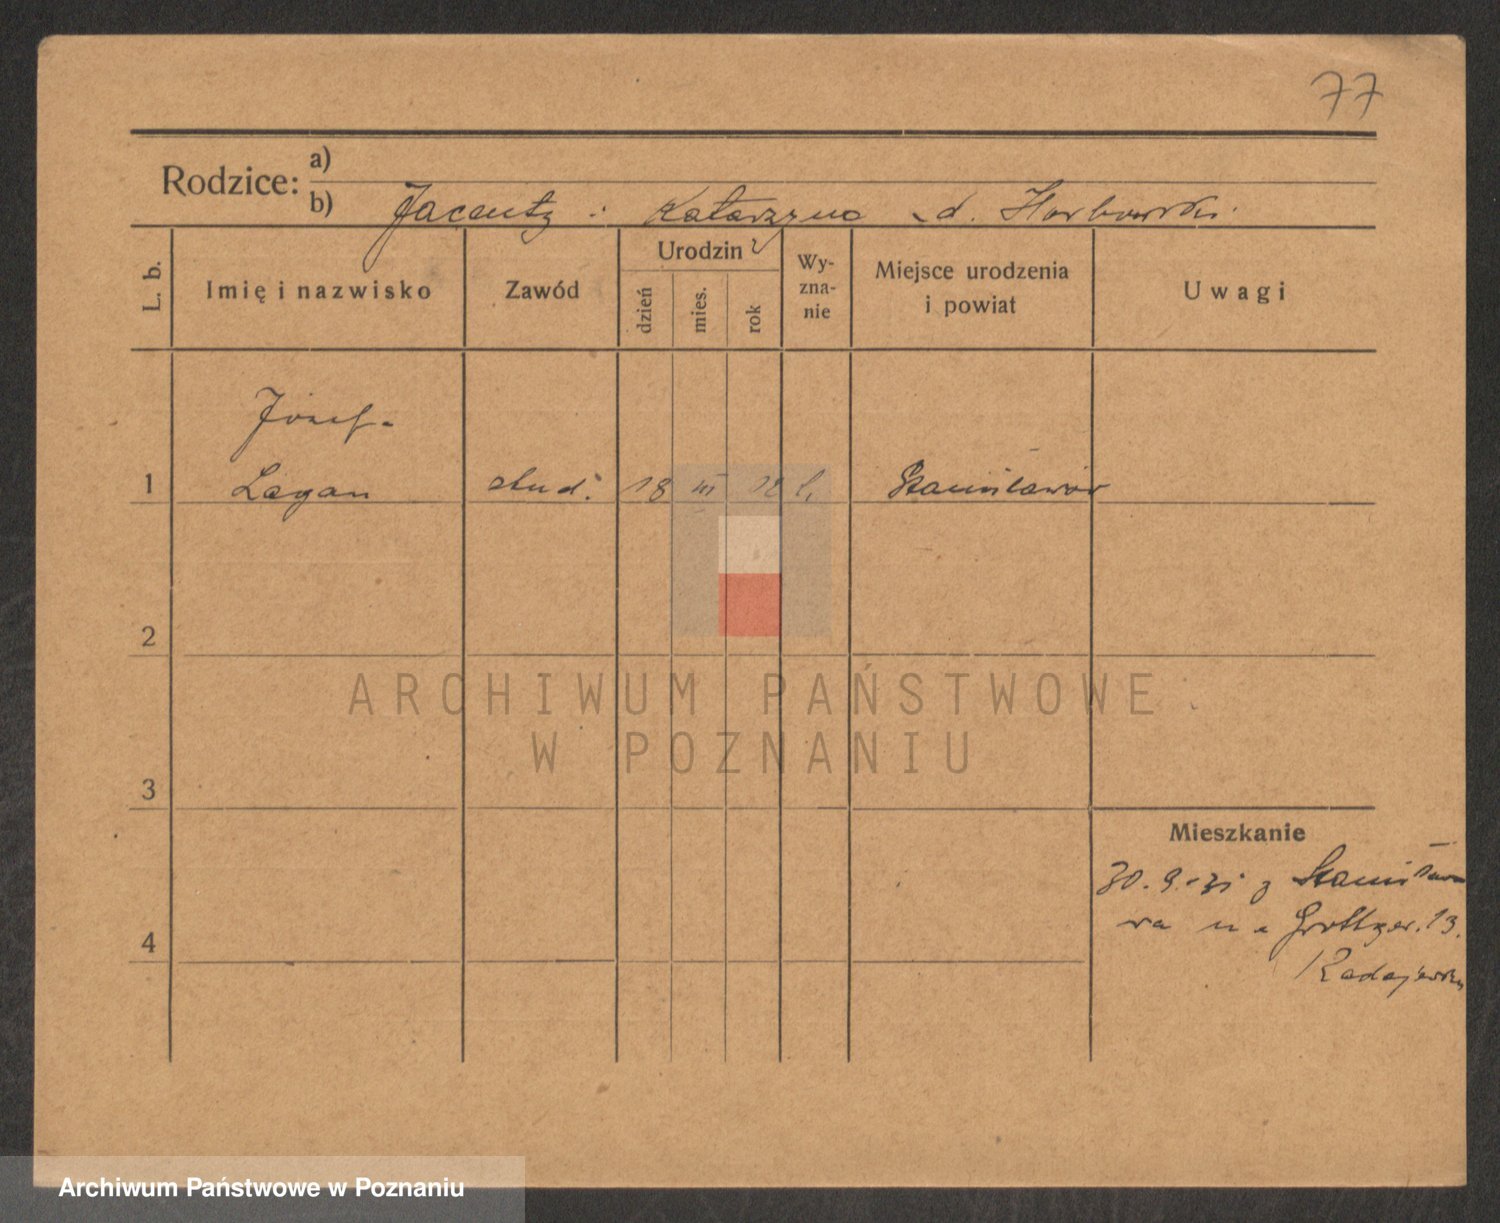 77
Rodzice: a)
b) Jacenty i Katarzyna z d. Horbowski
L. b. Imię i nazwisko Zawód Urodzin dzień mies. rok Wyznanie Miejsce urodzenia i powiat Uwagi
Józef
1 Lagan stud. 18 III 12 Stanisławów
2
3
Mieszkanie
30.9.31 z Stanisławo
wa na Grottger. 13.
4
ARCHIWUM PAŃSTWOWE
W POZNANIU
Archiwum Państwowe w Poznaniu